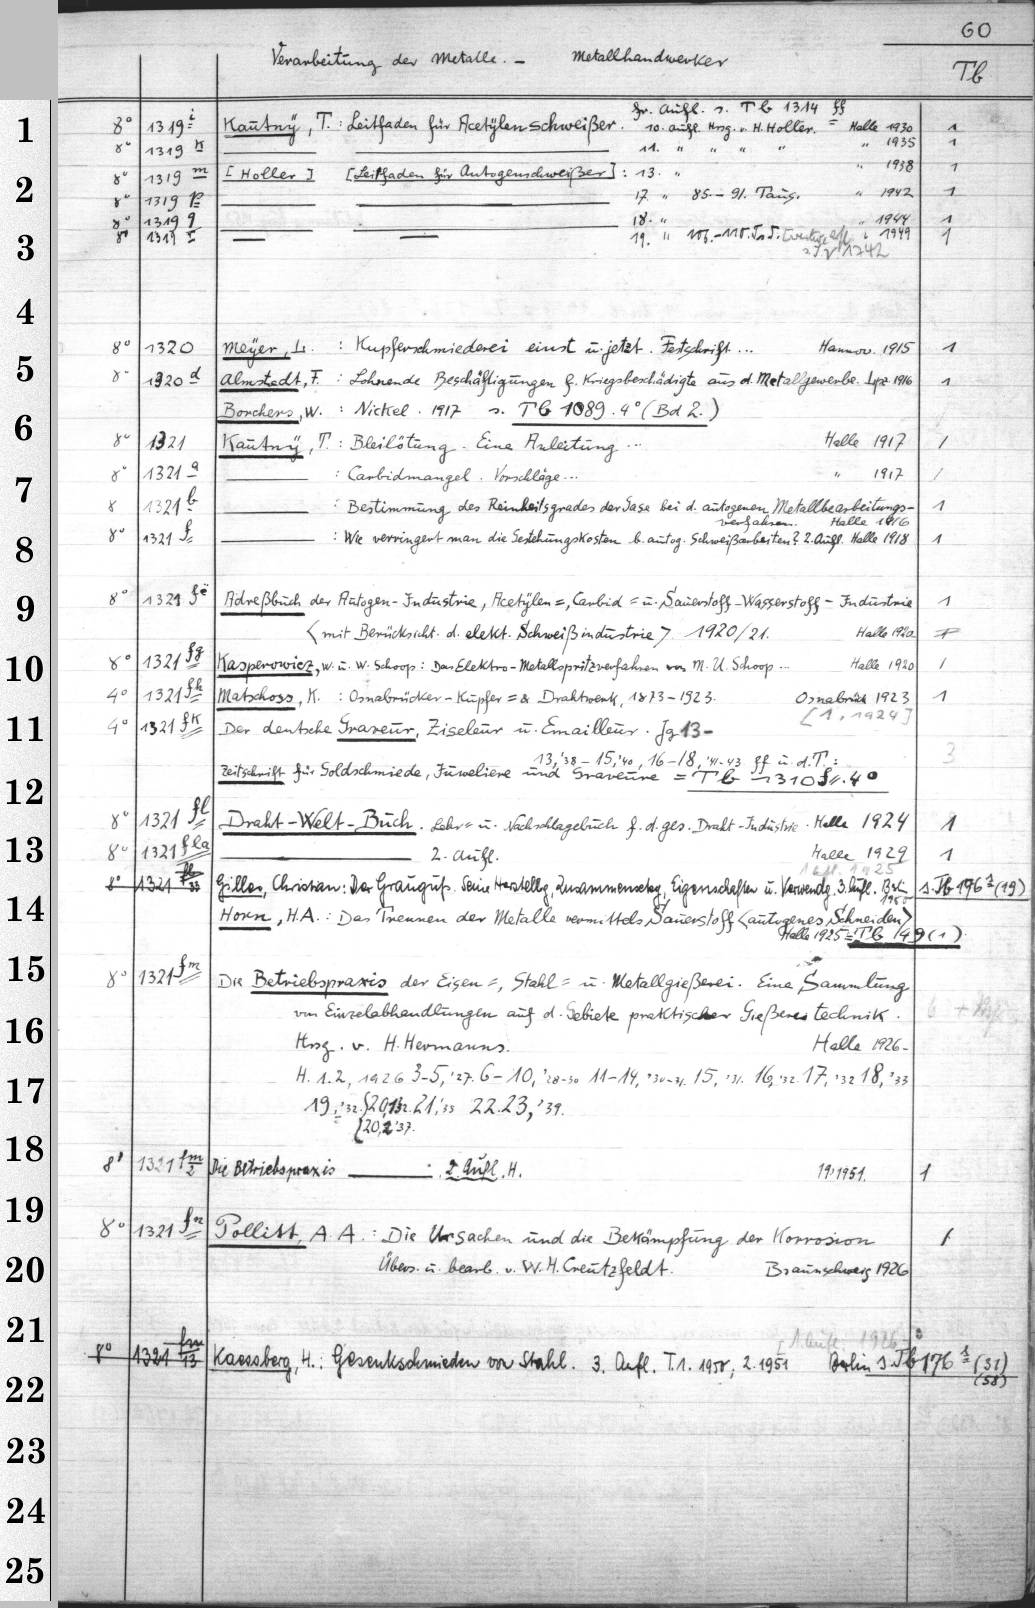 60
Verarbeitung der Metalle. - Metallhandwerker
Tb
fr. Aufl. s. Tb 1314 ff
1
8° 1319 i Kautny, T.: Leitfaden für Acetylenschweißer. 10. Aufl. Hrsg. v. H. Holler. Halle 1930 1
8° 1319 k 11. " " " " " 1935 1
2
8° 1319 m [Holler] [Leitfaden für Autogenschweißer]: 13. " " 1938 1
8° 1319 p 17 " 85.-91. Taus. " 1942 1
8° 1319 q 18. " " 1944 1
3
8° 1319 r 19. " 1949 1
1742
4
8° 1320 Meyer, L. : Kupferschmiederei einst u. jetzt. Festschrift ... Hannov. 1915 1
5
8° 1320 d Almstedt, F. : Lohnende Beschäftigungen f. Kriegsbeschädigte aus d. Metallgewerbe. Lpz. 1916 1
Borchers, W. : Nickel. 1917 s. Tb 1089. 4° (Bd 2.)
6
8° 1321 Kautny, T.: Bleilötung. Eine Anleitung ... Halle 1917 1
7
8° 1321 a : Carbidmangel. Vorschläge... " 1917 1
8 1321 b : Bestimmung des Reinheitsgrades der Gase bei d. autogenen Metallbearbeitungs-
verfahren. Halle 1916 1
8
8° 1321 f : Wie verringert man die Gestehungskosten b. autog. Schweißarbeiten? 2. Aufl. Halle 1918 1
9
8° 1321 fe Adreßbuch der Autogen-Industrie, Acetylen=, Carbid= u. Sauerstoff-Wasserstoff-Industrie 1
<mit Berücksicht. d. elekt. Schweißindustrie> 1920/21. Halle 1920
10
8° 1321 fg Kasperowicz, W. u. W. Schoop: Das Elektro-Metallspritzverfahren von M. U. Schoop ... Halle 1920 1
4° 1321 fh Matschoss, K. : Osnabrücker-Kupfer= & Drahtwerk, 1873-1923. Osnabrück 1923 1
[1, 1924]
11
4° 1321 fk Der deutsche Graveur, Ziseleur u. Emailleur. Jg 13-
3
13,'38-15,'40, 16-18,'41-43 ff u. d. T.:
Zeitschrift für Goldschmiede, Juweliere und Graveure = Tb 1310 f. 4°
12
8° 1321 fl Draht-Welt-Buch. Lehr= u. Nachschlagebuch f. d. ges. Draht-Industrie. Halle 1924 1
13
8° 1321 fla 2. Aufl. Halle 1929 1
8° 1321 Gilles, Christian: Der Grauguß. Seine Herstellg, Zusammensetzg, Eigenschaften u. Verwendg. 3. Aufl. Berlin 1950 s. Tb 176 s (19)
14
Horn, H.A.: Das Trennen der Metalle vermittels Sauerstoff <autogenes Schneiden>
Halle 1925 = Tb 149 (1)
15
8° 1321 fm Die Betriebspraxis der Eisen=, Stahl= u. Metallgießerei. Eine Sammlung
von Einzelabhandlungen auf d. Gebiete praktischer Gießereitechnik.
16
Hrsg. v. H. Hermanns. Halle 1926-
H. 1.2, 1926 3-5,'27. 6-10,'28-30 11-14,'30-31. 15,'31. 16,'32. 17,'32 18,'33
17
19,'32. {20,1'32. 21,'33 22.23,'39.
{20,2'37.
18
8° 1321 fm/2 Die Betriebspraxis . 2. Aufl. H. 19: 1951. 1
19
8° 1321 fn Pollitt, A. A.: Die Ursachen und die Bekämpfung der Korrosion 1
20
Übers. u. bearb. v. W. H. Creutzfeldt. Braunschweig 1926
21
[1. Aufl. 1926]
8° 1321 fm/13 Kaessberg, H.: Gesenkschmieden von Stahl. 3. Aufl. T. 1. 1950, 2. 1951 Berlin s. Tb 176 s (31)
(58)
22
23
24
25